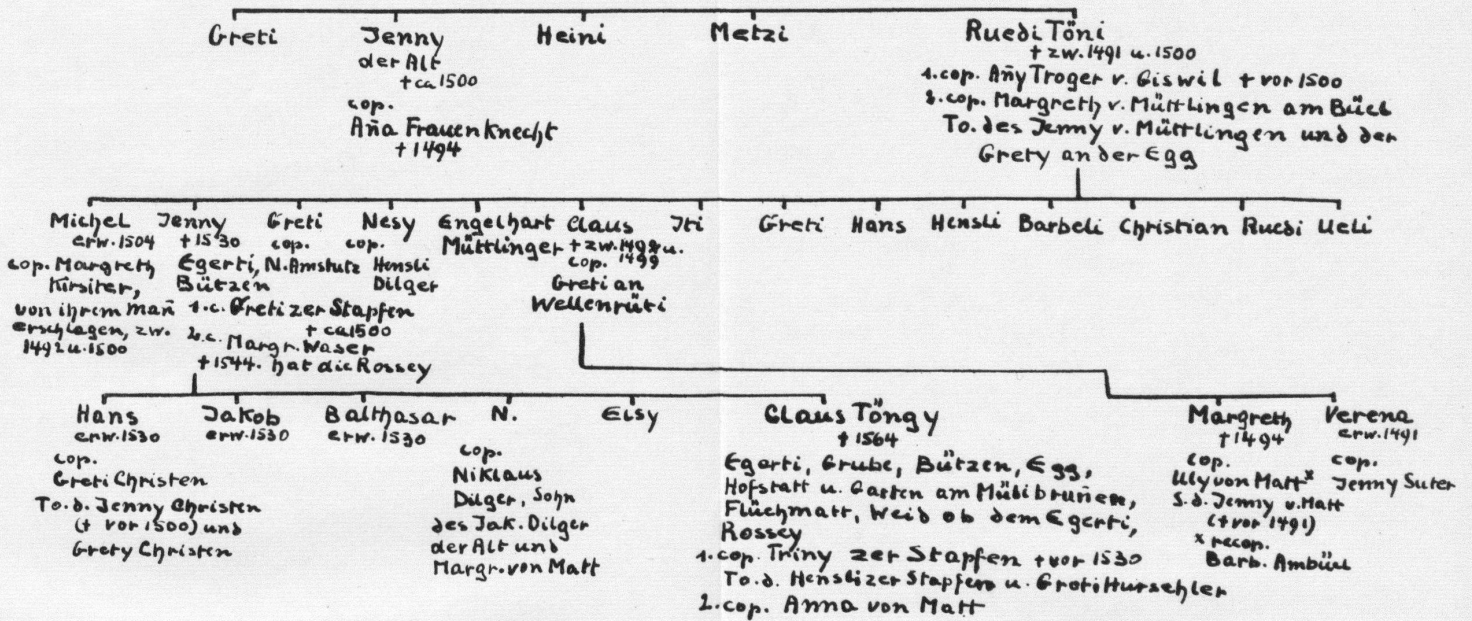 Greti
Jenny
der Alt
+ ca 1500
cop.
Aña Frauenknecht
+ 1494
Heini
Metzi
Ruedi Töni
+ zw. 1491 u. 1500
1. cop. Añy Troger v. Giswil + vor 1500
2. cop. Margreth v. Müttlingen am Büel
To. des Jenny v. Müttlingen und der
Grety an der Egg
Michel
erw. 1504
cop. Margreth
Kirsiter,
von ihrem Mañ
erschlagen, zw.
1492 u. 1500
Jenny
+ 1530
Egerti,
Bützen
1. c. Greti zer Stapfen
+ ca 1500
2. c. Margr. Waser
+ 1544. hat die Rossey
Greti
cop.
N. Amstutz
Nesy
cop.
Hensli
Dilger
Engelhart
Müttlinger
Claus
+ zw. 1492 u.
cop. 1499
Greti an
Wellenrüti
Iti
Greti
Hans
Hensli
Barbeli
Christian
Ruedi
Ueli
Hans
erw. 1530
cop.
Greti Christen
To. d. Jenny Christen
(+ vor 1500) und
Grety Christen
Jakob
erw. 1530
Balthasar
erw. 1530
N.
cop.
Niklaus
Dilger, Sohn
des Jak. Dilger
der Alt und
Margr. von Matt
Elsy
Claus Töngy
+ 1564
Egerti, Grube, Bützen, Egg,
Hofstatt u. Garten am Mülibruñen,
Flüehmatt, Weid ob dem Egerti,
Rossey
1. cop. Triny zer Stapfen + vor 1530
To. d. Hensli zer Stapfen u. Greti Hurschler
2. cop. Anna von Matt
Margreth
+ 1494
cop.
Uly von Matt x
S. d. Jenny v. Matt
(+ vor 1491)
x recop.
Barb. Ambüel
Verena
erw. 1491
cop.
Jenny Suter